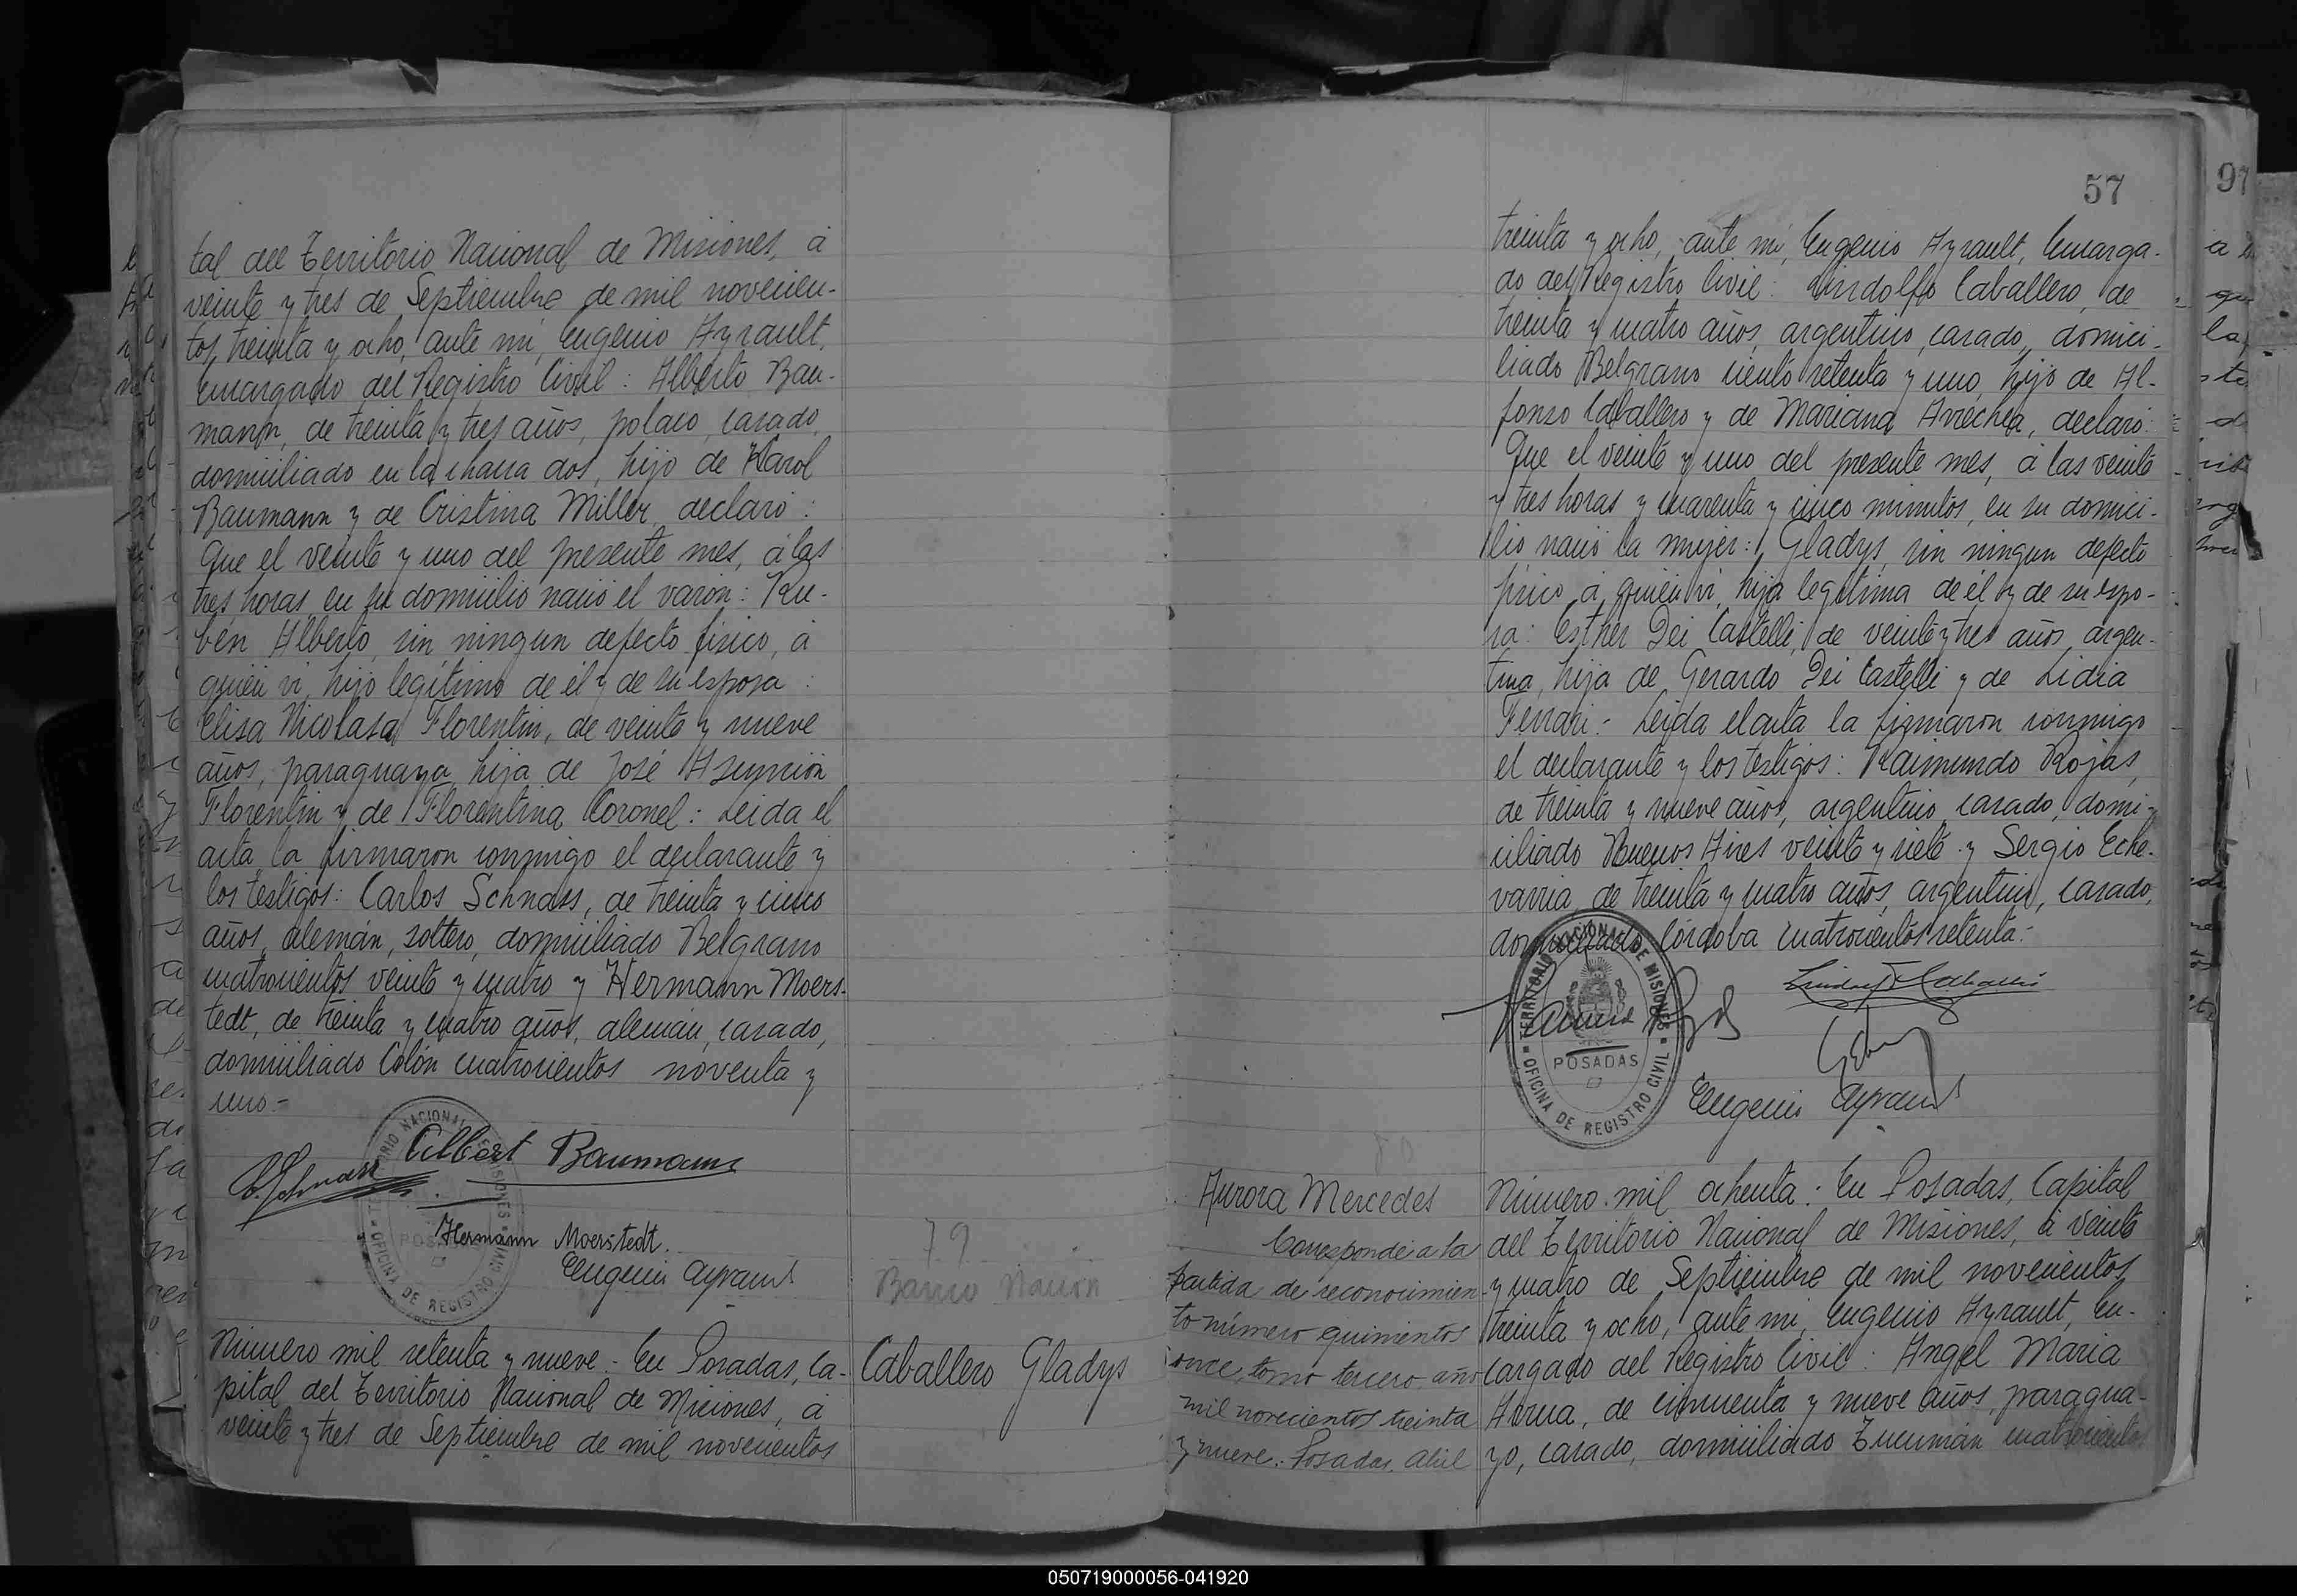 tal del Territorio Nacional de Misiones, á
veinte y tres de Septiembre de mil novecien-
tos treinta y ocho, ante mi, Eugenio Ayrault,
Encargado del Registro Civil: Alberto Bau-
mann, de treinta y tres años, polaco, casado,
domiciliado en la chacra dos, hijo de Karol
Baumann y de Cristina Miller, declaró:
Que el veinte y uno del presente mes, á las
tres horas, en su domicilio nació el varón: Ru-
bén Alberto, sin ningun defecto fisico, á
quien vi, hijo legítimo de él y de su esposa:
Elisa Nicolasa Florentin, de veinte y nueve
años, paraguaya, hija de José Asunción
Florentin y de Florentina Coronel: Leida el
acta la firmaron conmigo el declarante y
los testigos: Carlos Schnass, de treinta y cinco
años, alemán, soltero, domiciliado Belgrano
cuatrocientos veinte y cuatro y Hermann Moers-
tedt, de treinta y cuatro años, alemán, casado,
domiciliado Colón cuatrocientos noventa y
uno.-
Albert Baumann
C. Schnass
TERRITORIO NACIONAL DE MISIONES
POSADAS
OFICINA DE REGISTRO CIVIL
Hermann Moerstedt.
Eugenio Ayrault
79
Banco Nación
Caballero Gladys
Número mil setenta y nueve.- En Posadas, Ca-
pital del Territorio Nacional de Misiones, á
veinte y tres de Septiembre de mil novecientos
57
97
treinta y ocho, ante mi, Eugenio Ayrault, Encarga-
do del Registro Civil: Lindolfo Caballero, de
treinta y cuatro años, argentino, casado, domici-
liado Belgrano ciento setenta y uno, hijo de Al-
fonso Caballero y de Mariana Arrechea, declaró:
Que el veinte y uno del presente mes, á las veinte
y tres horas y cuarenta y cinco minutos, en su domici-
lio nació la mujer: Gladys, sin ningun defecto
fisico, á quien vi, hija legítima de él y de su espo-
sa: Esther Dei Castelli, de veinte y tres años, argen-
tina, hija de Gerardo Dei Castelli y de Lidia
Ferrari.- Leida el acta la firmaron conmigo
el declarante y los testigos: Raimundo Rojas,
de treinta y nueve años, argentino, casado, domi-
ciliado Buenos Aires veinte y siete y Sergio Eche-
varria, de treinta y cuatro años, argentino, casado,
domiciliado Córdoba cuatrocientos setenta.-
TERRITORIO NACIONAL DE MISIONES
POSADAS
OFICINA DE REGISTRO CIVIL
Eugenio Ayrault
80
Aurora Mercedes
Corresponde a la
partida de reconocimien-
to número quinientos
once, tomo tercero, año
mil novecientos treinta
y nueve.. Posadas, Abril
Número mil ochenta: En Posadas, Capital
del Territorio Nacional de Misiones, á veinte
y cuatro de Septiembre de mil novecientos
treinta y ocho, ante mi, Eugenio Ayrault, En-
cargado del Registro Civil: Angel Maria
de cincuenta y nueve años, paragua-
yo, casado, domiciliado Tucumán cuatrocientos
050719000056-041920